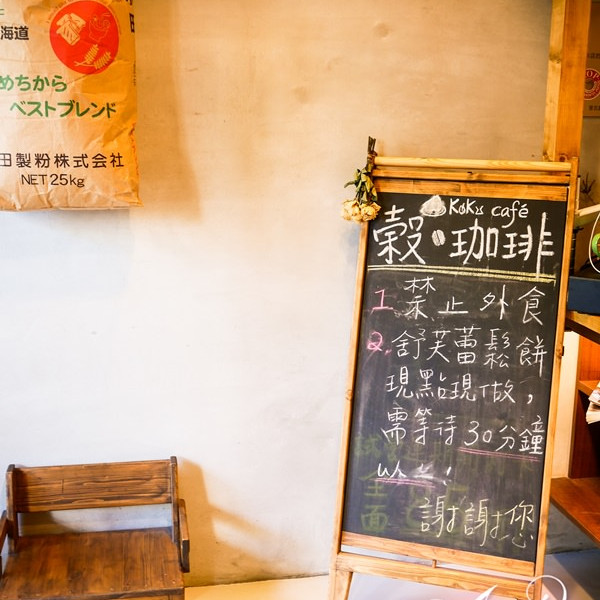 海道
めちから
ベストブレンド
田製粉株式会社
NET 25kg
KoKu café
穀 珈琲
1. 禁止外食
2. 舒芙蕾鬆餅
現點現做,
需等待30分鐘
以上!
謝謝您
全
面